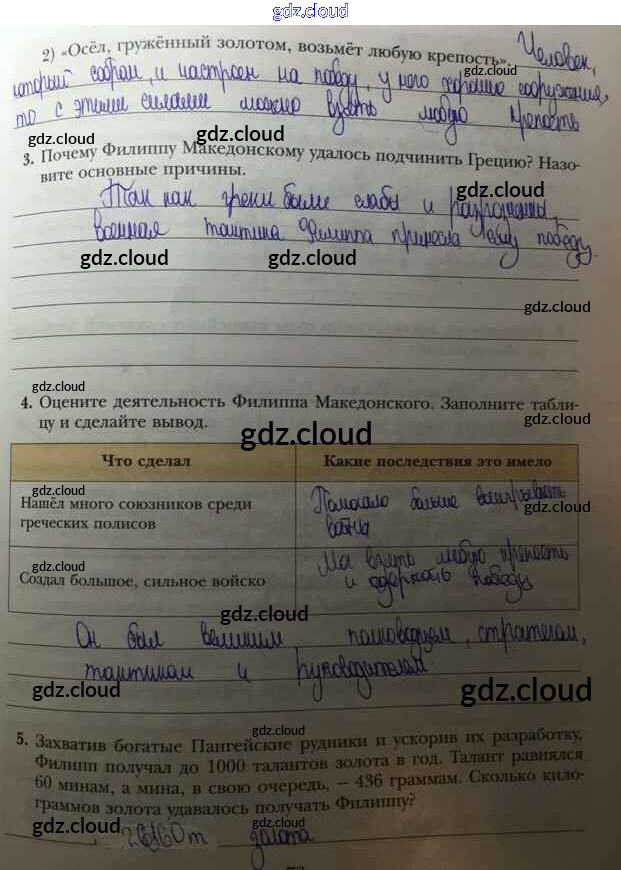 gdz.cloud
2) «Осёл, гружённый золотом, возьмёт любую крепость». Человек,
который собран, и настроен на победу, у него хорошие сооружения,
gdz.cloud
то с этими силами можно взять любую крепость
gdz.cloud gdz.cloud
3. Почему Филиппу Македонскому удалось подчинить Грецию? Назо-
вите основные причины.
gdz.cloud
Так как греки были слабы и разрознены,
военная тактика Филиппа принесла ему победу.
gdz.cloud gdz.cloud
gdz.cloud
gdz.cloud
4. Оцените деятельность Филиппа Македонского. Заполните табли-
цу и сделайте вывод.
gdz.cloud gdz.cloud
Что сделал Какие последствия это имело
Нашёл много союзников среди
греческих полисов
Помогало больше выигрывать
войны
gdz.cloud gdz.cloud
Создал большое, сильное войско
Мог взять любую крепость
и одержать победу
gdz.cloud gdz.cloud
gdz.cloud
Он был великим полководцем, стратегом,
тактиком и руководителем.
gdz.cloud gdz.cloud gdz.cloud
gdz.cloud
5. Захватив богатые Пангейские рудники и ускорив их разработку,
Филипп получал до 1000 талантов золота в год. Талант равнялся
60 минам, а мина, в свою очередь, – 436 граммам. Сколько кило-
граммов золота удавалось получать Филиппу?
gdz.cloud gdz.cloud
золота